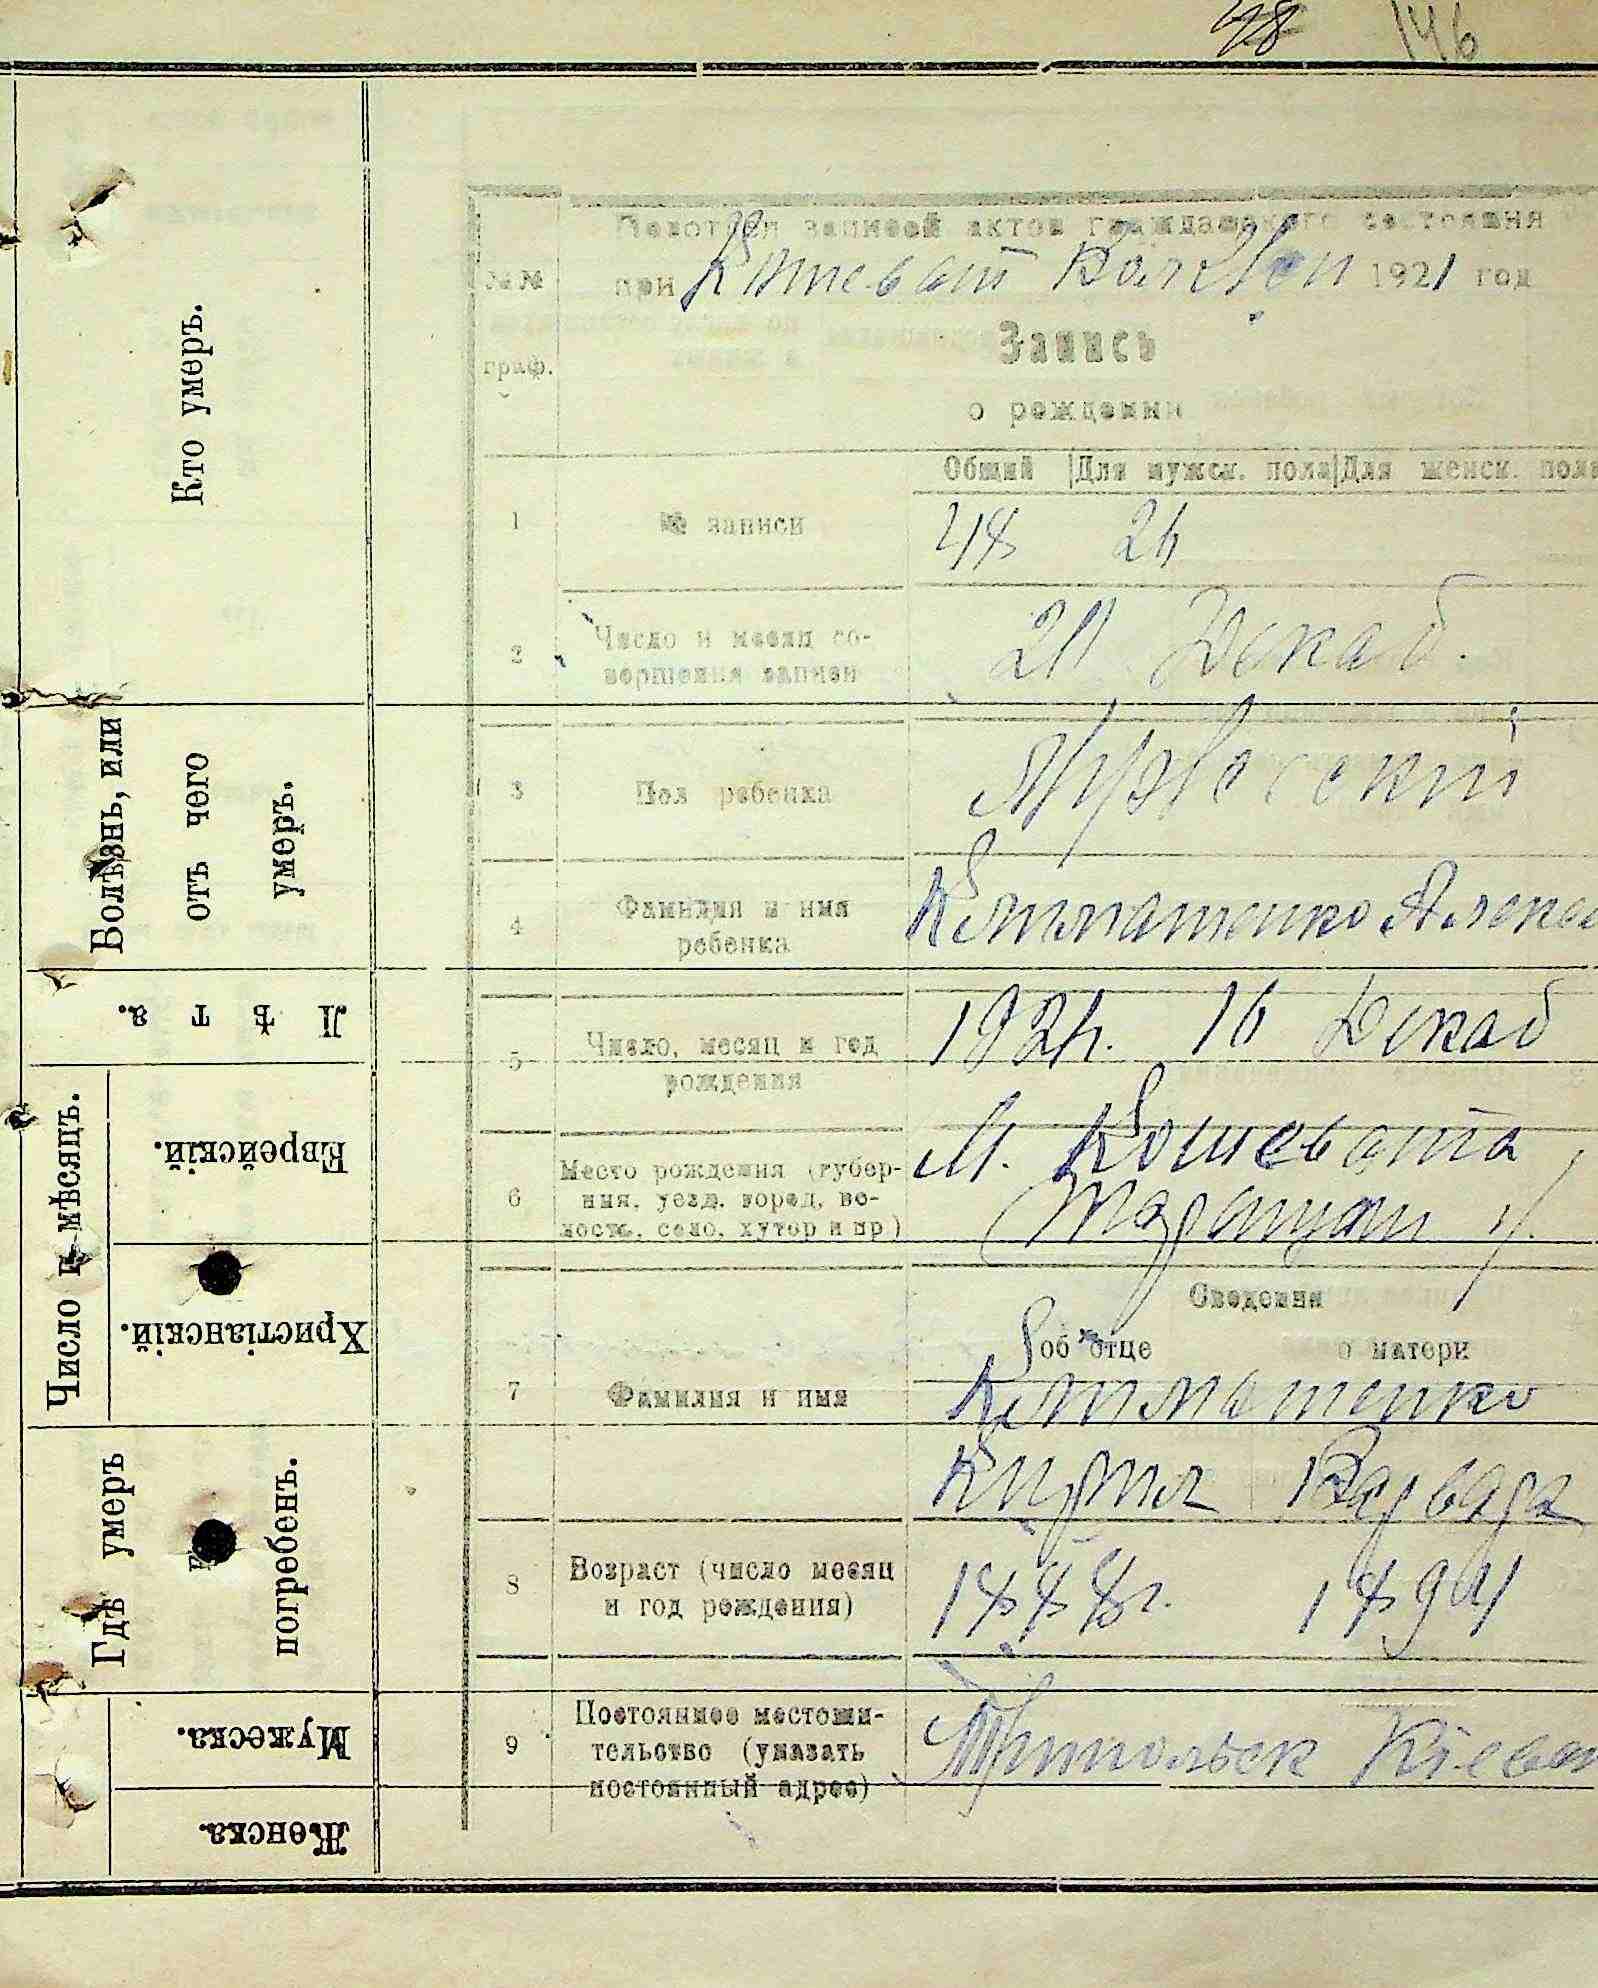 48 146
Кто умеръ.
Болѣзнь, или
отъ чего
умеръ.
Лѣта.
Число и мѣсяцъ.
Еврейскій.
Христіанскій.
Гдѣ умеръ
и
погребенъ.
Мужеска.
Женска.
№№
граф.
Подотдел записей актов гражданского состояния
при 1921 год
Запись
о рождении
Общий |Для мужск. пола|Для женск. пола
1 № записи 48 26
2 Число и месяц со-
вершения записи
Декаб.
3 Пол ребенка Мужеский
4 Фамилия и имя
ребенка
5 Число, месяц и год
рождения
1921г. 16 Декаб
6 Место рождения (губер-
ния, уезд, город, во-
лость, село, хутор и пр)
М. Кошевата
Таращан у.
Сведения
об отце о матери
7 Фамилия и имя
Кирил Варвара
8 Возраст (число месяц
и год рождения)
1888г. 1894
9 Постоянное местожи-
тельство (указать
постоянный адрес)